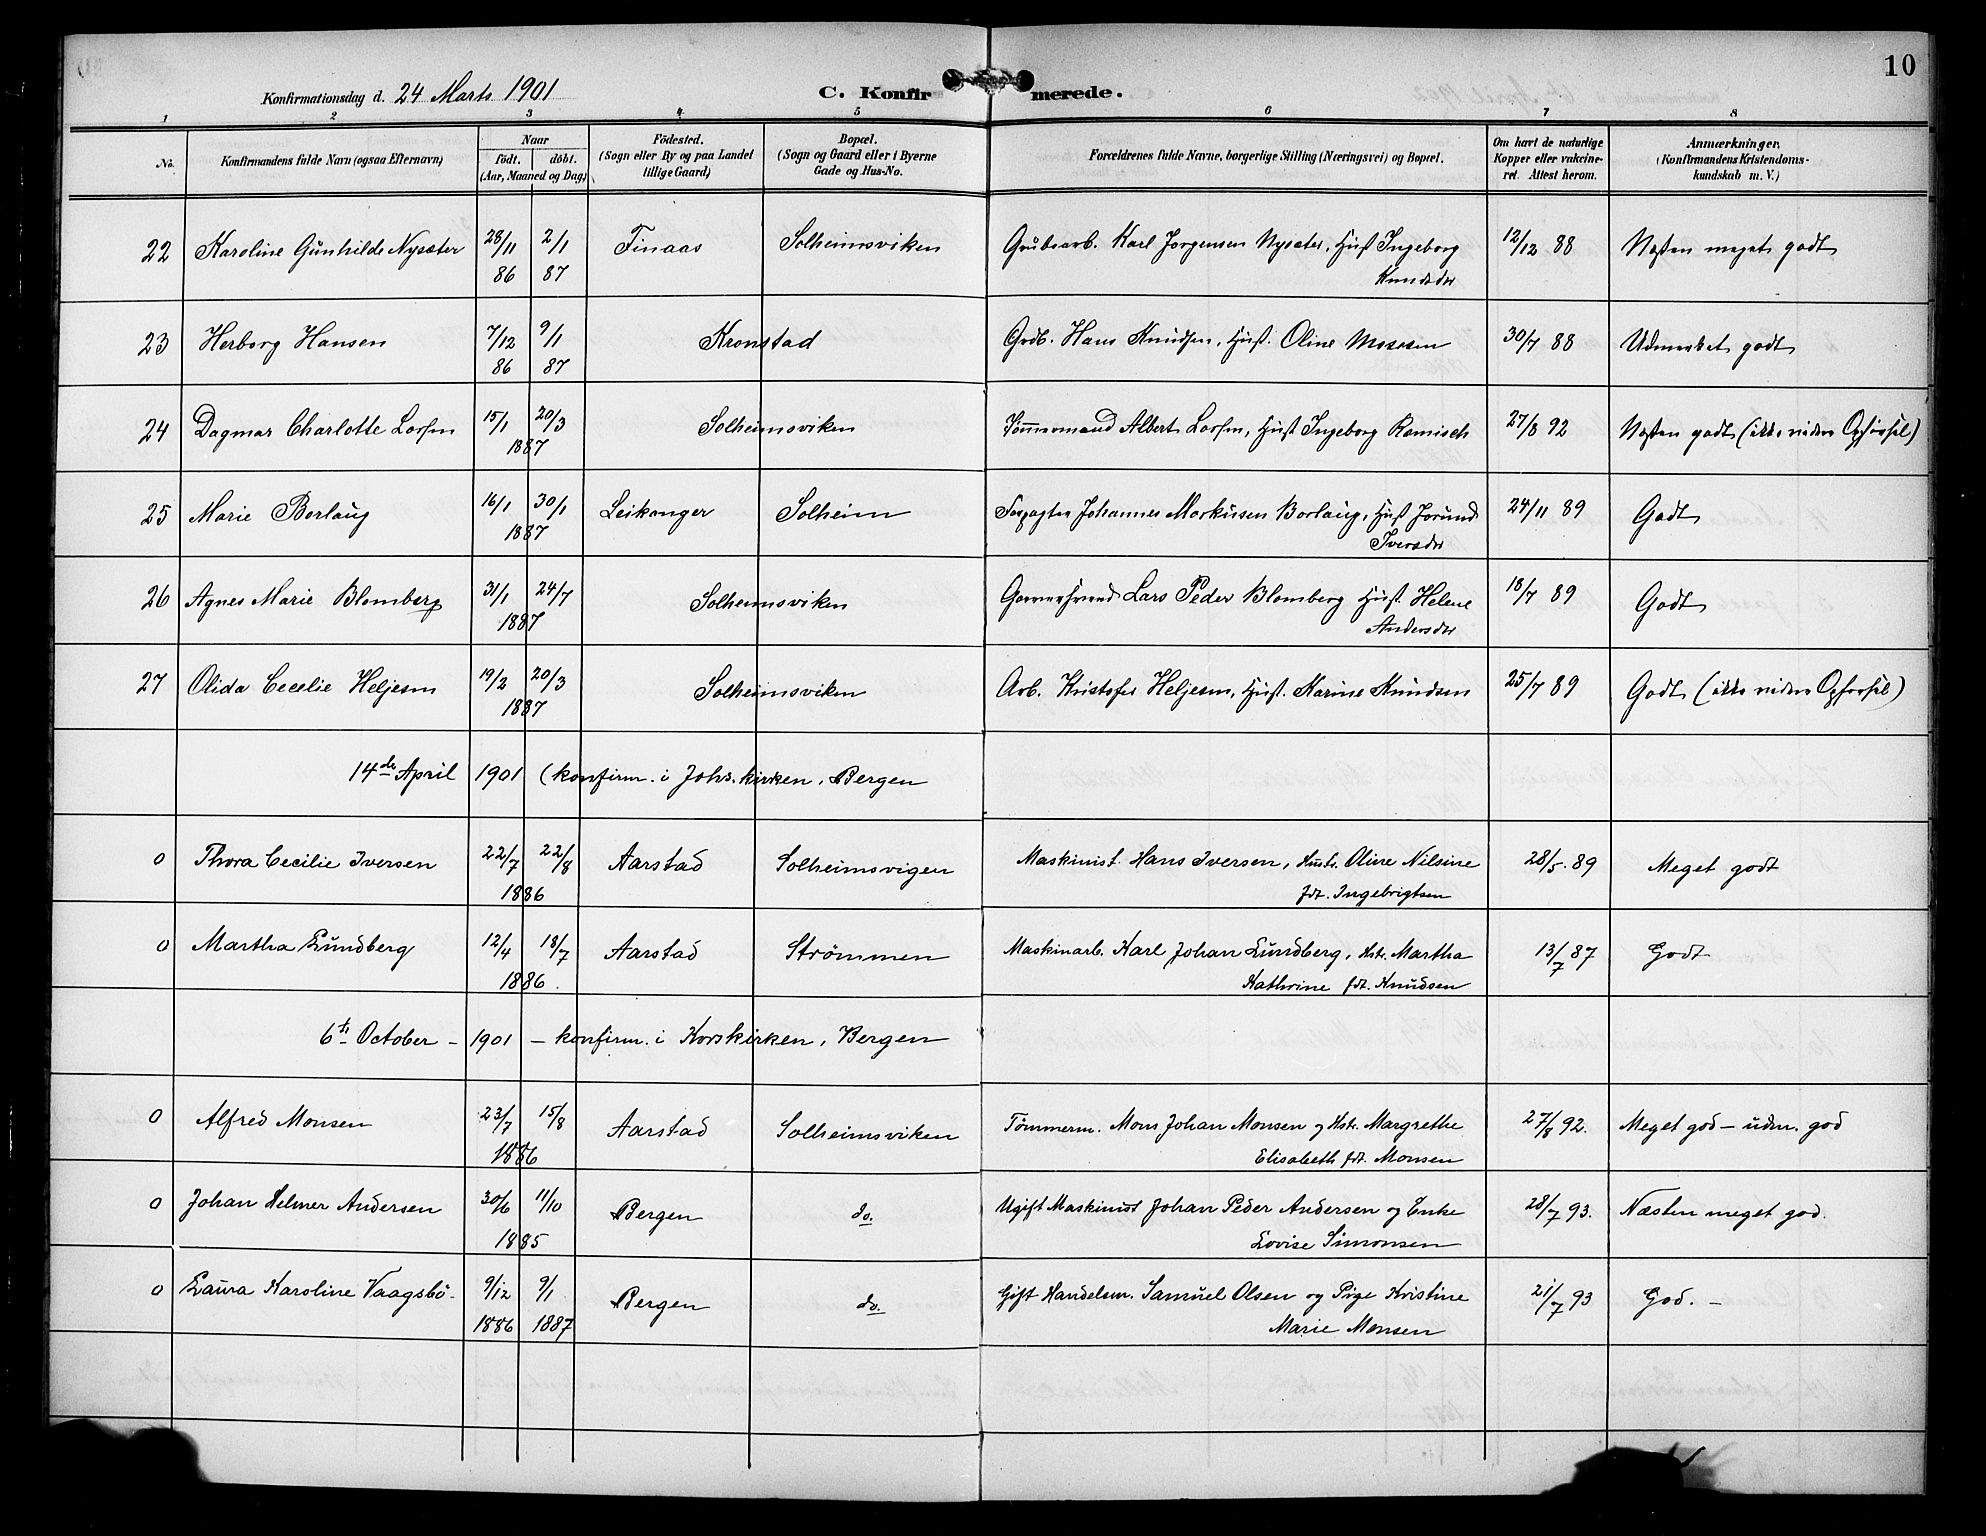 10
Konfirmationsdag d. 24 Marts 1901 C. Konfirmerede.
1 2 3 4 5 6 7 8
No. Konfirmandens fulde Navn (ogsaa Efternavn) Naar født. døbt. (Aar, Maaned og Dag) Födested. (Sogn eller By og paa Landet tillige Gaard) Bopæl. (Sogn og Gaard eller i Byerne Gade og Hus-No. Forældrenes fulde Navne, borgerlige Stilling (Næringsvei) og Bopæl. Om havt de naturlige Kopper eller vakcineret. Attest herom. Anmærkninger. (Konfirmandens Kristendomskundskab m. V.)
22 Karoline Gunhilde Nysæter 28/11 86 2/1 87 Finaas Solheimsviken Grubearb. Karl Jørgensen Nysæter, Hust Ingeborg Knudsdr 12/12 88 Næsten meget godt
23 Herborg Hansen 7/12 86 9/1 87 Kronstad Grdb. Hans Knudsen, Hust. Oline Mosesen 30/7 88 Udmerket godt
24 Dagmar Charlotte Larsen 15/1 20/3 1887 Solheimsviken Tömmermand Albert Larsen, Hust Ingeborg Romisch 27/8 92 Næsten godt (ikke videre Opførsel)
25 Marie Borlaug 16/1 30/1 1887 Leikanger Solheim Forpagter Johannes Markusen Borlaug, Hust Jorund Iversdr 24/11 89 Godt
26 Agnes Marie Blomberg 31/1 24/7 1887 Solheimsviken Lars Peder Blomberg Hust. Helene Andersdr 18/7 89 Godt
27 Olida Cecelie Heljesen 19/2 20/3 1887 Solheimsviken Arb. Kristofer Heljesen, Hust. Karine Knudsen 25/7 89 Godt (ikke videre Opførsel)
14de April 1901 (konfirm. i Johs. kirken, Bergen
0 Thora Cecilie Iversen 22/7 22/8 1886 Aarstad Solheimsvigen Maskinist Hans Iversen, Hustr. Oline Nilsine fdt. Ingebrigtsen 28/5. 89 Meget godt
0 Martha Lundberg 12/4 18/7 1886. Aarstad Strømmen Maskinarb. Karl Johan Lundberg, Hstr. Martha Kathrine fdt. Knudsen 13/7 87 Godt
6te October - 1901 - konfirm. i Korskirken, Bergen
0 Alfred Monsen 23/7 15/8 1886 Aarstad Solheimsviken Tömmerm. Mons Johan Monsen og Hstr. Margrethe Elisabeth fdt. Monsen 27/8 92. Meget god - udm. god
0 Johan Helmer Andersen 30/6 11/10 1885 Bergen do. Ugift Maskinist Johan Peder Andersen og Enke Lovise Simonsen 28/7 93. Næsten meget god.
0 Laura Karoline Vaagsbö. 9/12 1886 9/1 1887 Bergen do. Gift Handelsm. Samuel Olsen og Pige Kristine Marie Monsen 21/7 93 God. -